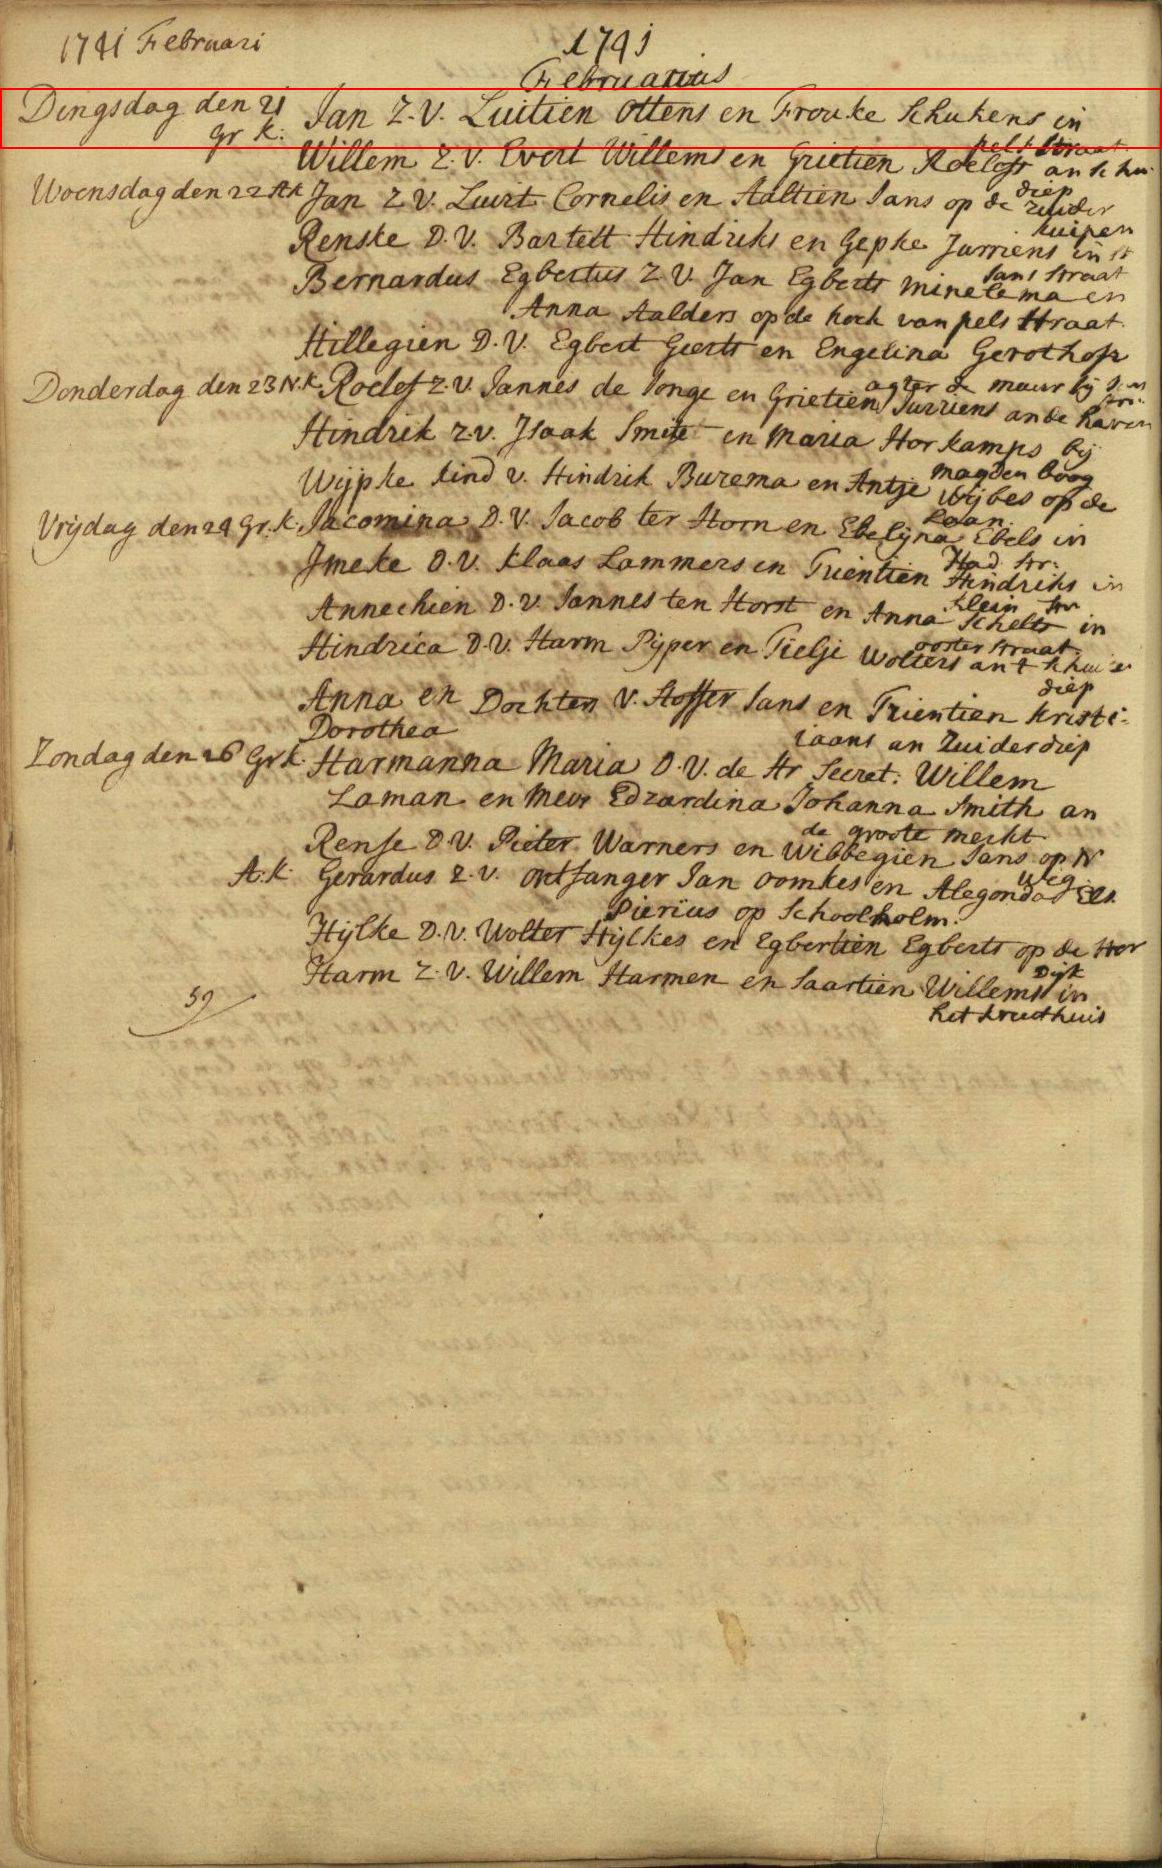 1741 Februari
1741
Februarius
Dingsdag den 21 Jan Z.V. Luitien Ottens en Frouke Schukens in
gr k: pels straat
Willem Z.V. Evert Willems en Grietien Roelofs an schui
diep
Woensdag den 22 Ak Jan Z V. Luirt Cornelis en Aaltien Jans op de zuider
kuipen
Renske D.V. Bartelt Hindriks en Gepke Jurriens in st
Jans straat
Bernardus Egbertus Z V. Jan Egberts Minelema en
Anna Aalders op de hoek van pels straat
Hillegien D.V. Egbert Geerts en Engelina Gerothofs
agter de muur bij
Donderdag den 23 N.K. Roelef Z.V. Jannes de Jonge en Grietien Jurriens an de haven
Hindrik Z.V. Isaak Smitt en Maria Horkamps bij
Magden boog
Wijpke kind v. Hindrik Burema en Antje Wijbes op de
Laan
Vrijdag den 24 Gr. K. Jacomina D.V. Jacob ter Horn en Ebelijna Ebels in
Had. str:
Imeke D.V. Klaas Lammers en Trientien Hindriks in
klein str
Annechien D.V. Jannes ten Horst en Anna Schelts in
ooster straat
Hindrica D.V. Harm Pijper en Tielje Wolters an t schui
diep
Anna en Dochters V. Stoffer Jans en Trientien Kristi-
Dorothea iaans an Zuiderdiep
Zondag den 26 Gr k. Harmanna Maria D.V. de Hr Secret: Willem
Laman en Mevr Edzardina Johanna Smith an
de groote merkt
Rense D.V. Pieter Warners en Wibbegien Jans op N
weg
A.K. Gerardus Z.V. ontfanger Jan Oomkes en Alegonda Els.
Pierius op Schoolholm.
Hijlke D.V. Wolter Hijlkes en Egbertien Egberts op de Her
Dijk
Harm Z.V. Willem Harmen en Saartien Willems in
het kruithuis
39